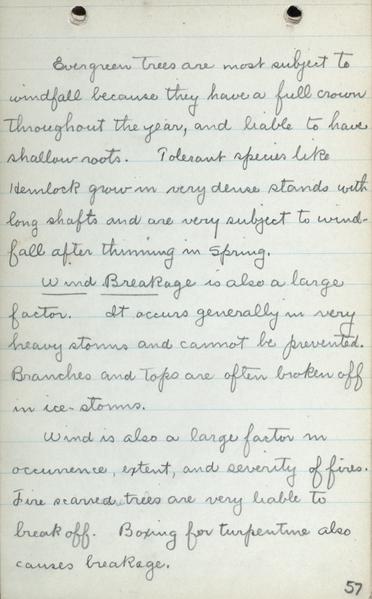 Evergreen trees are most subject to
windfall because they have a full crown
throughout the year, and liable to have
shallow roots. Tolerant species like
Hemlock grow in very dense stands with
long shafts and are very subject to wind-
fall after thinning in Spring.
Wind Breakage is also a large
factor. It occurs generally in very
heavy storms and cannot be prevented.
Branches and Tops are often broken off
in ice-storms.
Wind is also a large factor in
occurrence, extent, and severity of fires.
Fire scarred trees are very liable to
break off. Boxing for turpentine also
causes breakage.
57